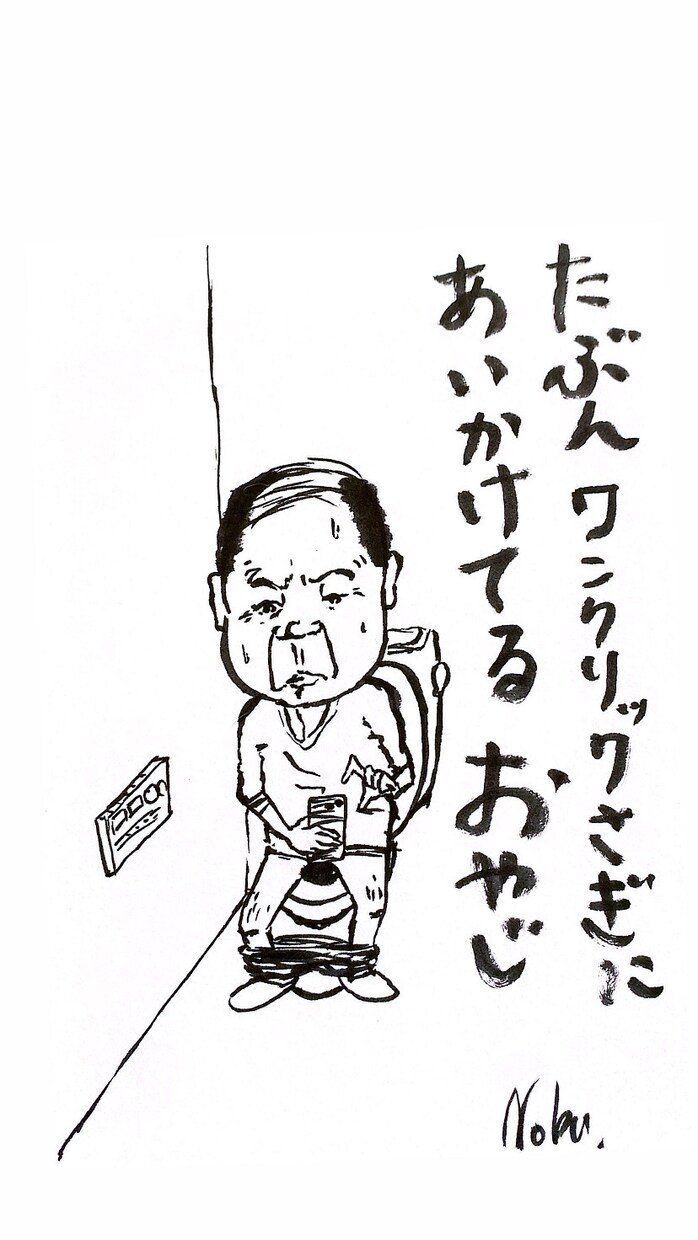 たぶんワンクリックさぎに
あいかけてるおやじ
Nobu.